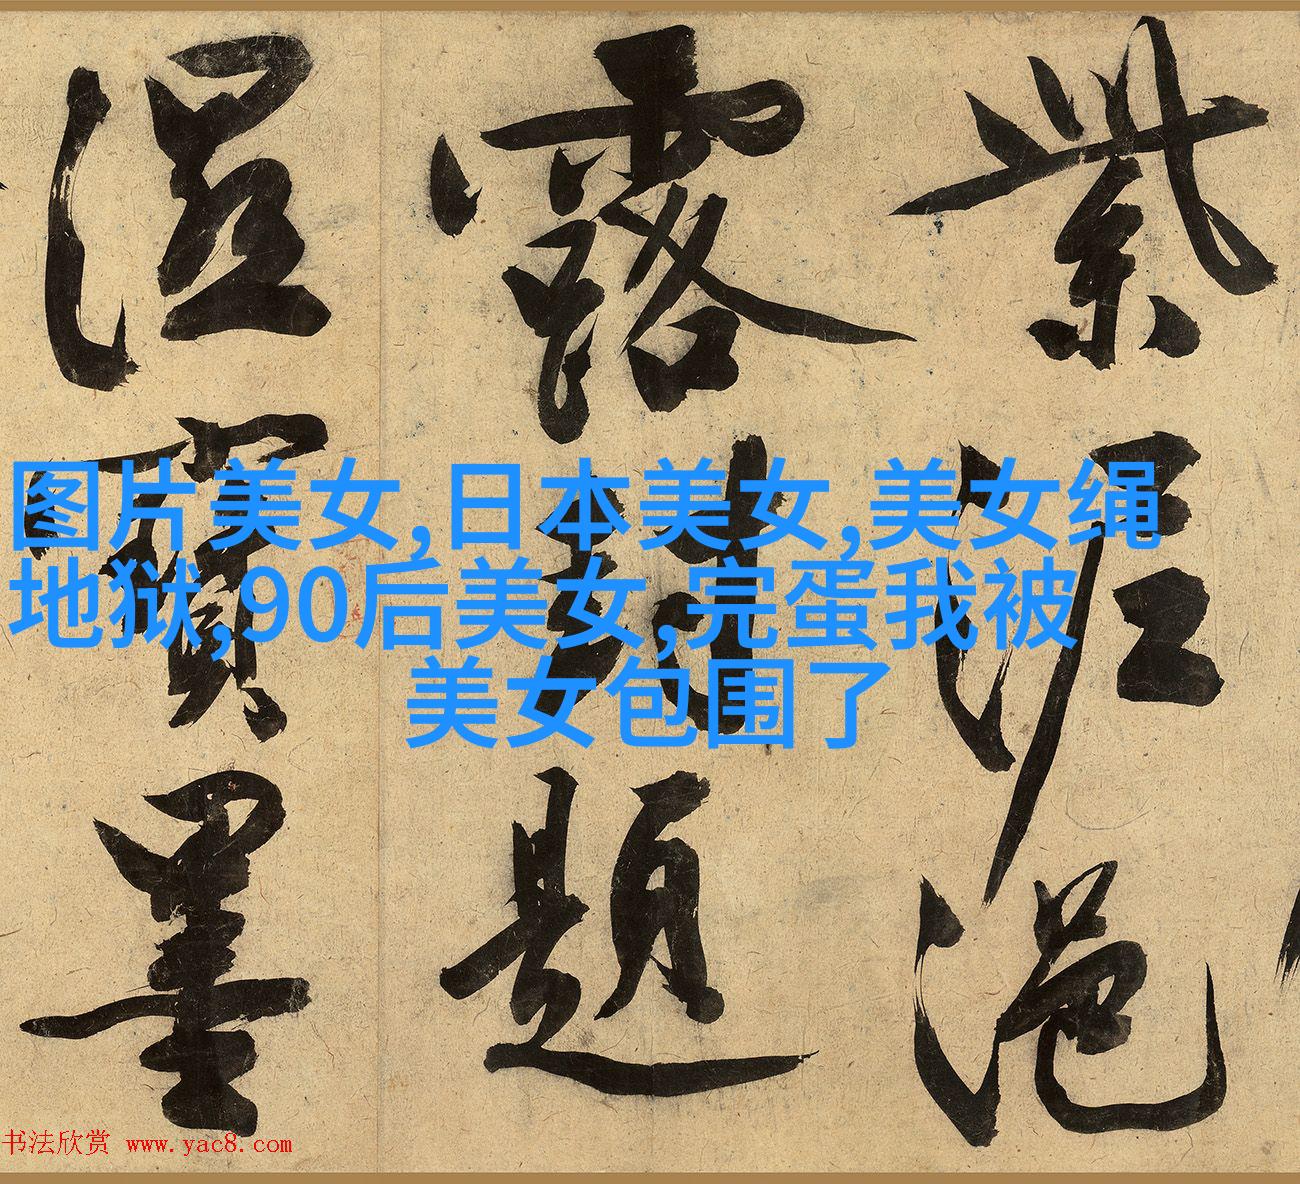 紫泥浥
露封題
湿寶墨
图片美女,日本美女,美女绳
地狱,90后美女,完蛋我被
美女包围了
书法欣赏 www.yac8.com